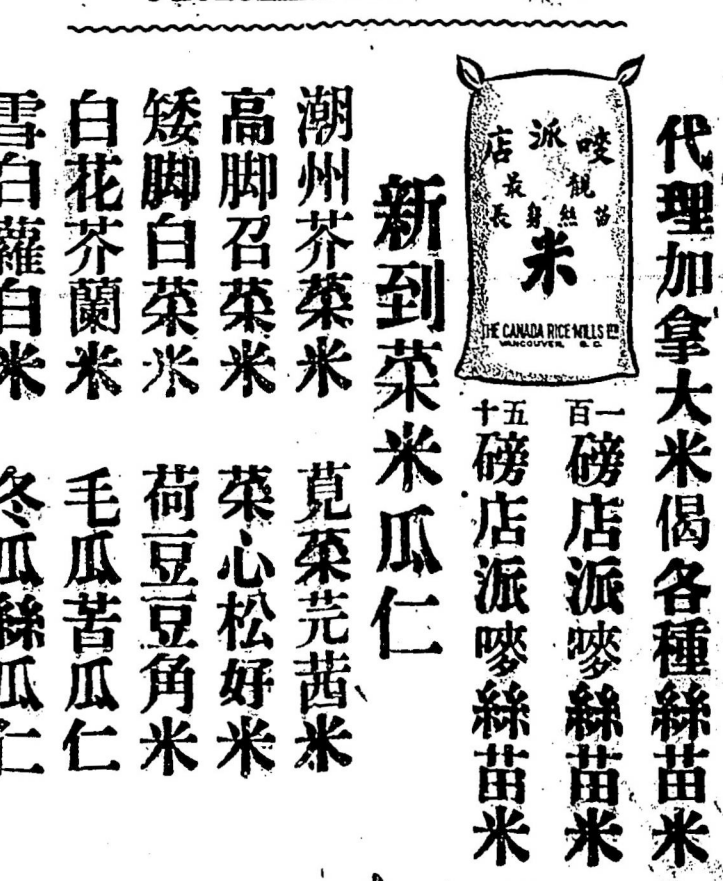 代理加拿大米偈各種絲苗米
店派唛
最靚
長身絲苗
米
THE CANADA RICE MILLS LTD
VANCOUVER, B. C.
一百磅店派嘜絲苗米
五十磅店派嘜絲苗米
新到菜米瓜仁
潮州芥菜米
莧菜芫茜米
高脚召菜米
菜心松好米
矮脚白菜米
荷豆豆角米
白花芥蘭米
毛瓜苦瓜仁
雪白蘿白米
冬瓜絲瓜仁